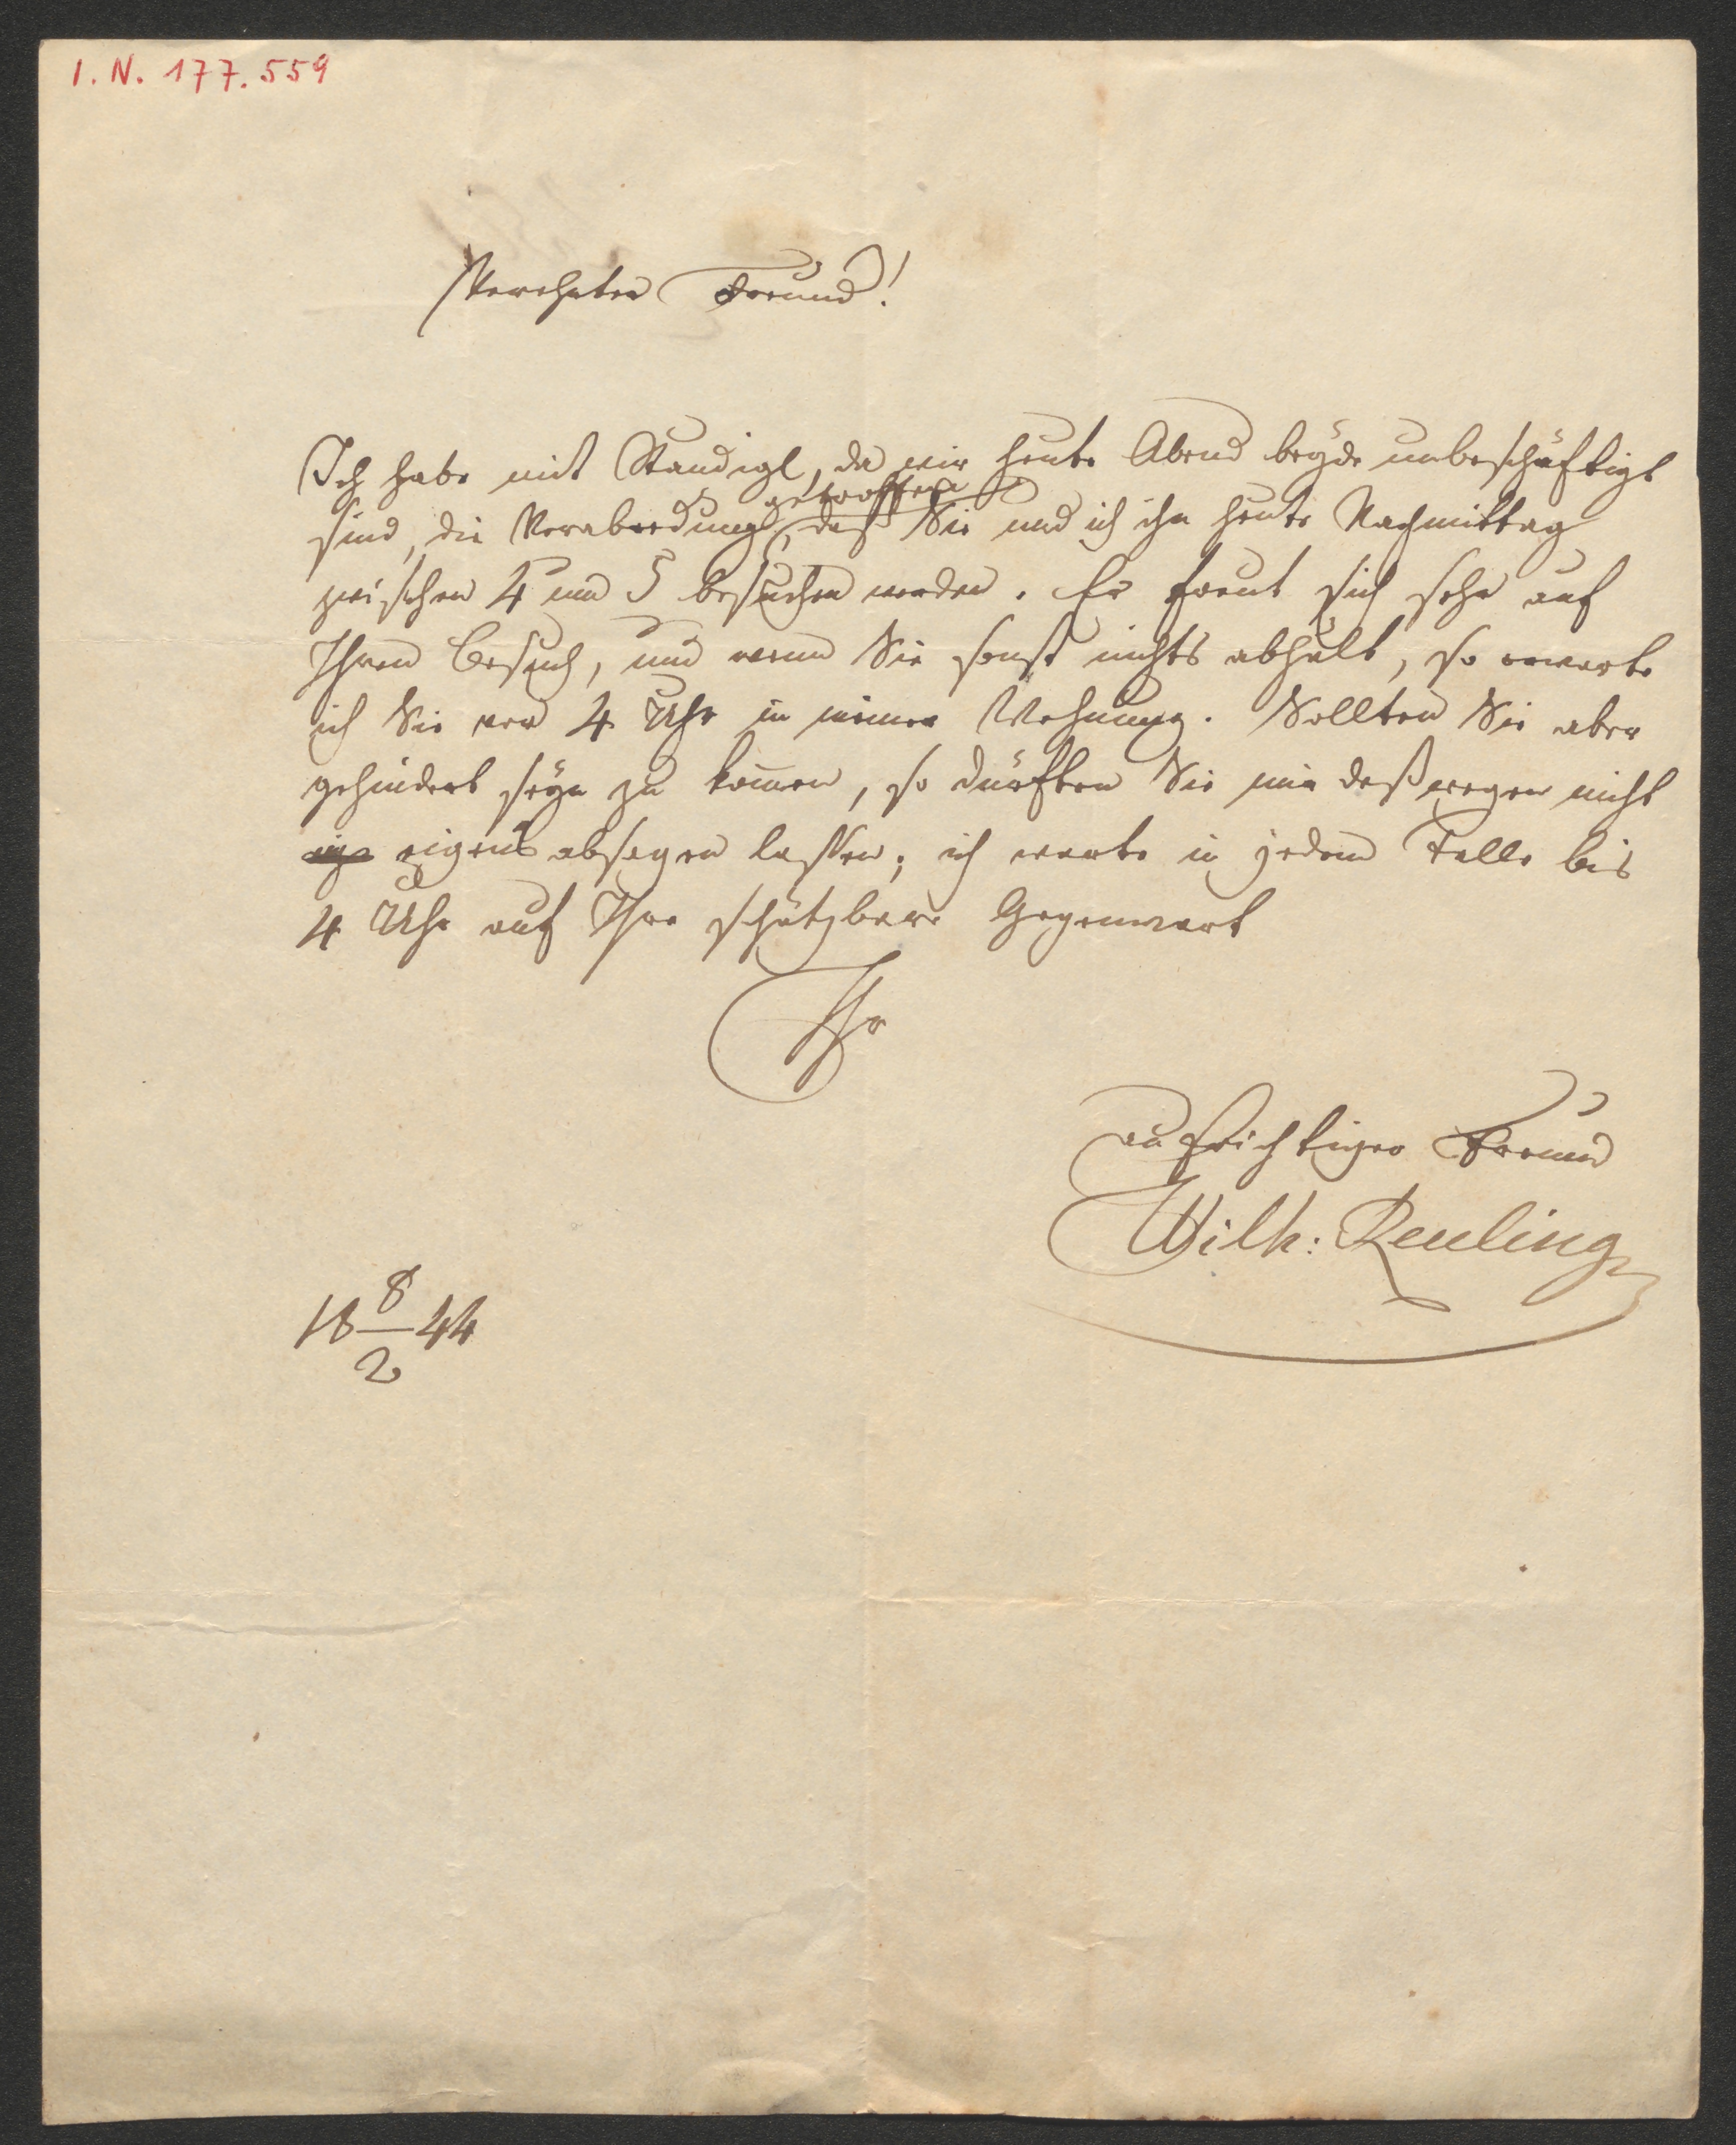 I. N. 177.559
Verehrter Freund!
Ich habe mit Staudigl, da wir heute Abend beyde unbeschäftigt
getroffen
sind, die Verabredung, daß Sie und ich ihn heute Nachmittag
zwischen 4 und 5 besuchen werden. Er freut sich sehr auf
Ihren Besuch, und wenn Sie sonst nichts abhält, so erwarte
ich Sie vor 4 Uhr in meiner Wohnung. Sollten Sie aber
gehindert seyn zu kom̄en, so dürften Sie mir deßwegen nicht
eigens absagen lassen; ich warte in jedem Falle bis
4 Uhr auf Ihre schätzbare Gegenwart
Ihr
aufrichtiger Freund
Wilh: Reuling
8
18 — 44
2